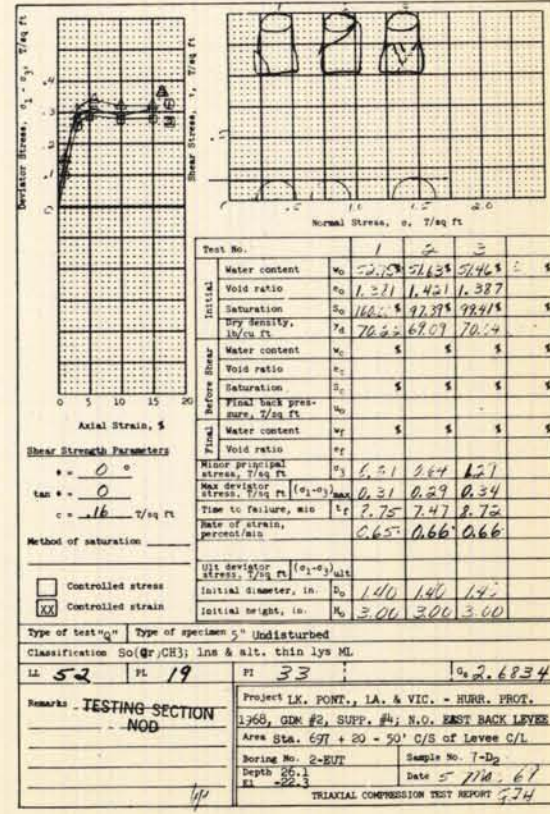 Deviator Stress, σ1 - σ3, T/sq ft
.4
.3
.2
.1
0
0 5 10 15 20
Axial Strain, %
Shear Stress, τ, T/sq ft
0 .5 1.0 1.5 2.0
Normal Stress, σ, T/sq ft
Shear Strength Parameters
φ = 0 °
tan φ = 0
c = .16 T/sq ft
Method of saturation
Controlled stress
XX Controlled strain
Test No. 1 2 3
Initial
Water content w₀ 51.63% 51.46% %
Void ratio e₀ 1.381 1.421 1.387
Saturation S₀ % 97.39% 99.41% %
Dry density, lb/cu ft γd 69.09
Before Shear
Water content wc % % % %
Void ratio ec
Saturation Sc % % % %
Final back pressure, T/sq ft u₀
Final
Water content wf % % % %
Void ratio ef
Minor principal stress, T/sq ft σ3 0.64 1.27
Max deviator stress, T/sq ft (σ1-σ3)max 0.31 0.29 0.34
Time to failure, min tf 7.47 8.72
Rate of strain, percent/min 0.65 0.66 0.66
Ult deviator stress, T/sq ft (σ1-σ3)ult
Initial diameter, in. D₀ 1.40 1.40 1.40
Initial height, in. H₀ 3.00 3.00 3.00
Type of test "Q" Type of specimen 5" Undisturbed
Classification So(Gr)CH3; lns & alt. thin lys ML
LL 52 PL 19 PI 33 Gs 2.6834
Remarks TESTING SECTION
NOD
Project LK. PONT., LA. & VIC. - HURR. PROT.
1968, GDM #2, SUPP. #4; N.O. EAST BACK LEVEE
Area Sta. 697 + 20 - 50' C/S of Levee C/L
Boring No. 2-EUT Sample No. 7-D2
Depth 26.1
El -22.3 Date 5
TRIAXIAL COMPRESSION TEST REPORT